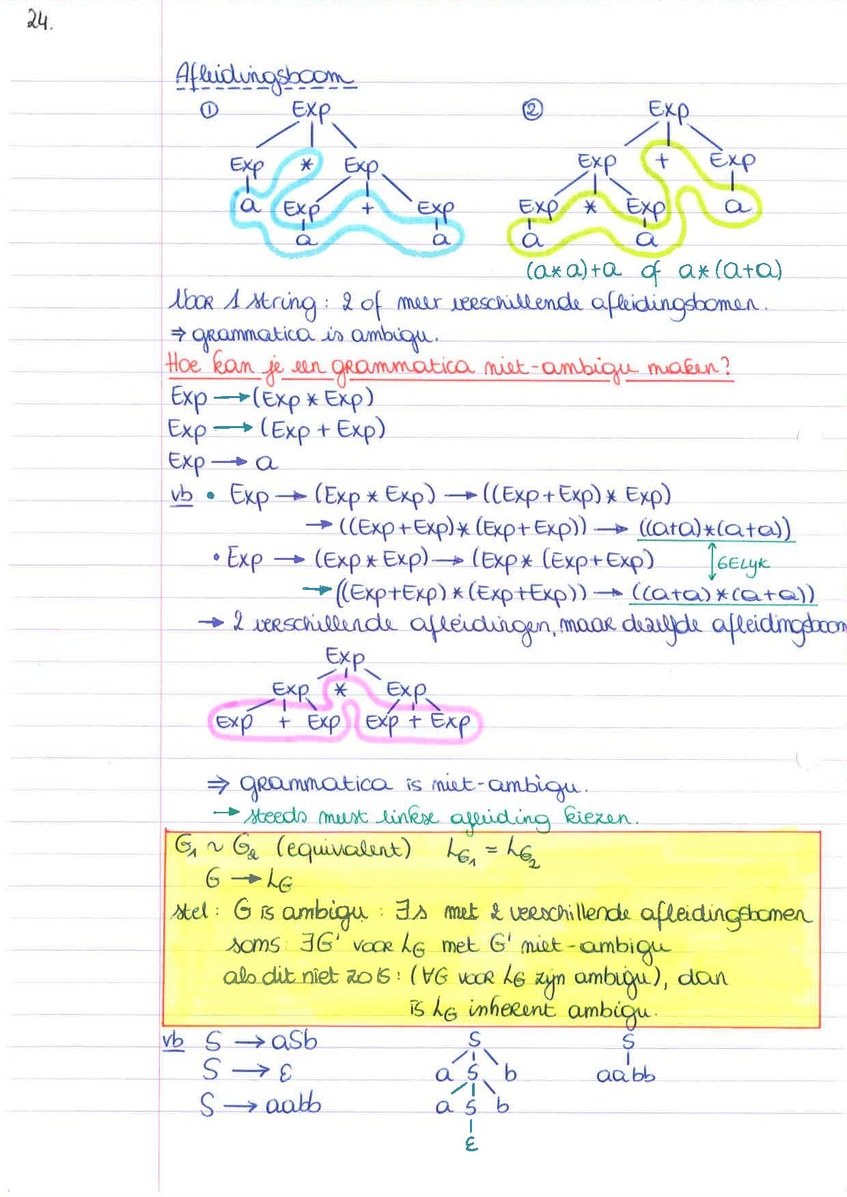 24.
Afleidingsboom
① Exp ② Exp
Exp * Exp Exp + Exp
a Exp + Exp Exp * Exp a
a a a a
(a*a)+a of a*(a+a)
Voor 1 string: 2 of meer verschillende afleidingsbomen.
⇒ grammatica is ambigu.
Hoe kan je een grammatica niet-ambigu maken?
Exp → (Exp * Exp)
Exp → (Exp + Exp)
Exp → a
vb • Exp → (Exp * Exp) → ((Exp+Exp) * Exp)
→ ((Exp+Exp)*(Exp+Exp)) → ((a+a)*(a+a))
• Exp → (Exp * Exp) → (Exp* (Exp+Exp) ↕ GELYK
→ ((Exp+Exp)*(Exp+Exp)) → ((a+a)*(a+a))
→ 2 verschillende afleidingen, maar dezelfde afleidingsboom
Exp
Exp * Exp
Exp + Exp Exp + Exp
⇒ grammatica is niet-ambigu.
→ steeds meest linkse afleiding kiezen.
G₁ ~ G₂ (equivalent) L_G₁ = L_G₂
G → L_G
stel: G is ambigu: ∃s met 2 verschillende afleidingsbomen
soms: ∃G' voor L_G met G' niet-ambigu
als dit niet zo is: (∀G voor L_G zijn ambigu), dan
is L_G inherent ambigu.
vb S → aSb S S
S → ε a S b aabb
S → aabb a S b
ε